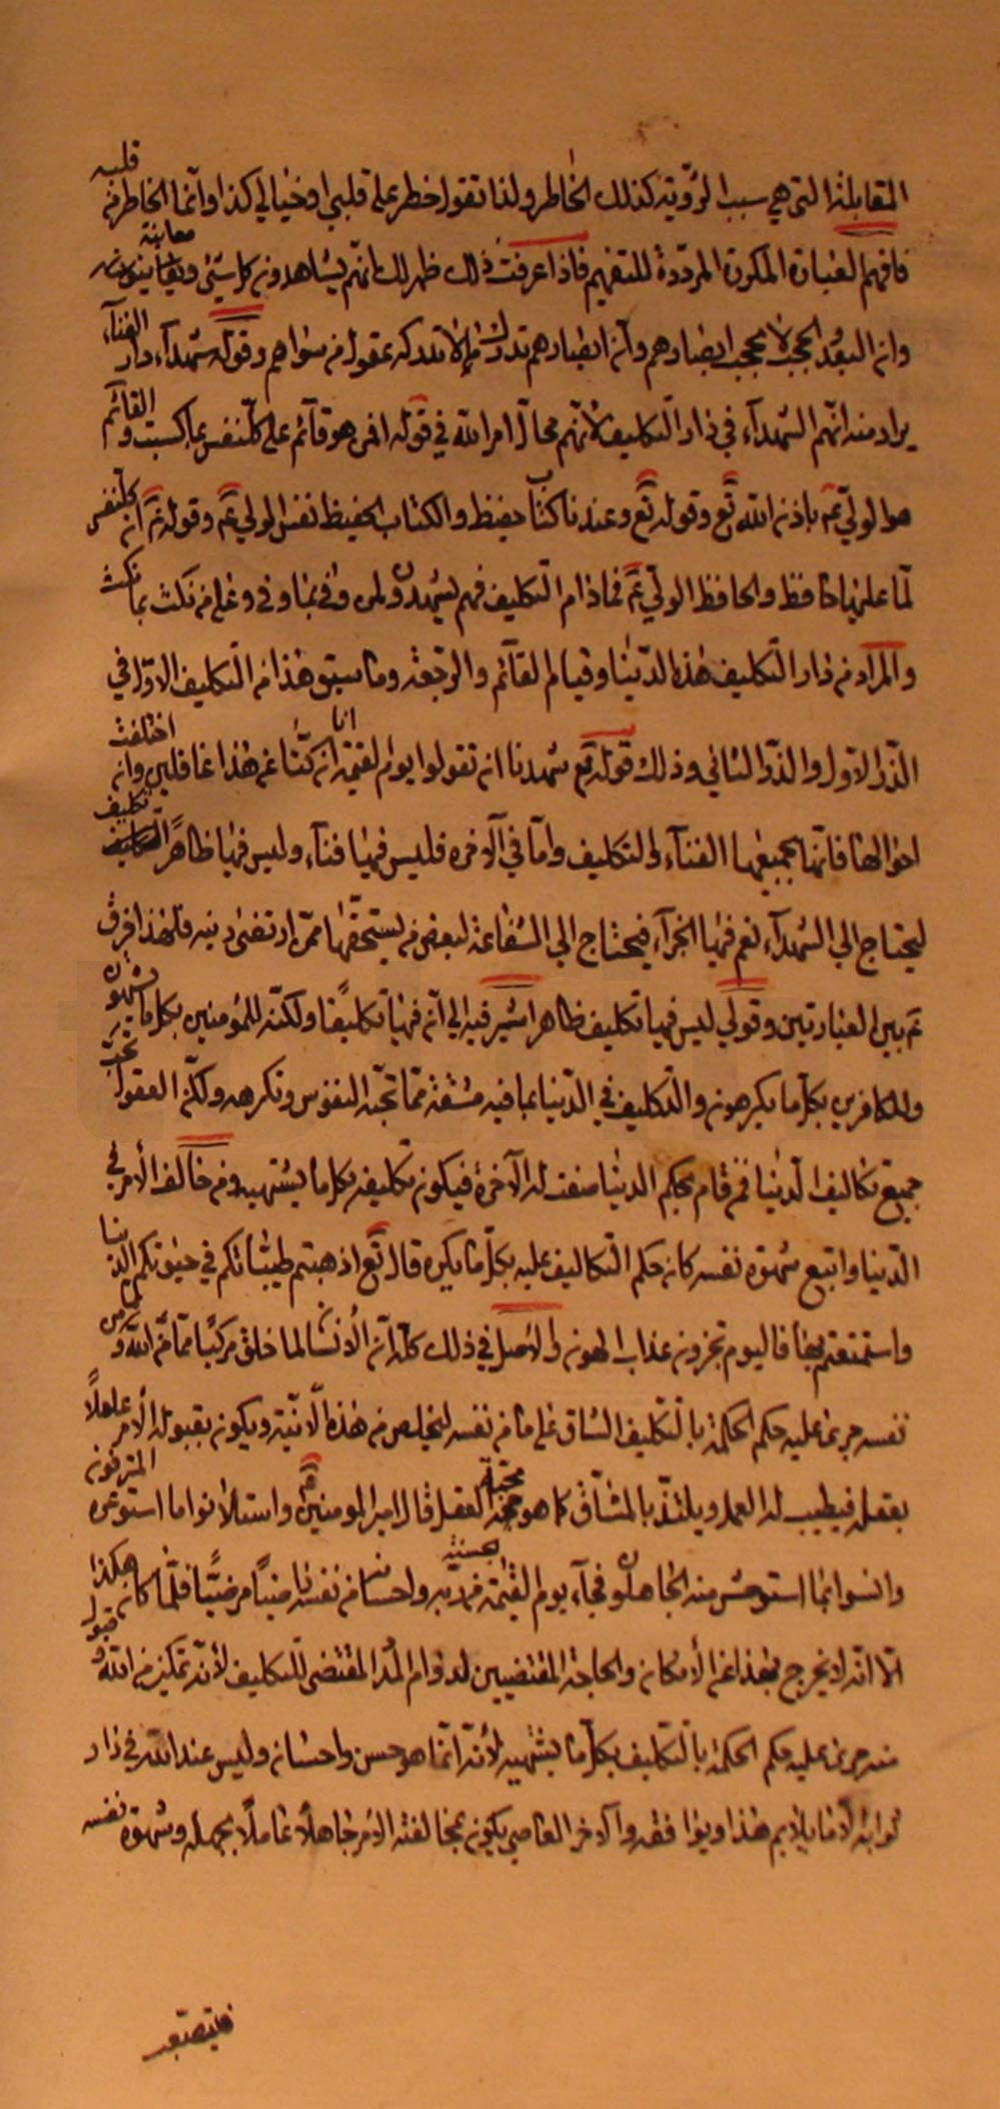 المقابلة التى هي سبب الرؤية كذلك الخاطر ولذا تقول خطر على قلبي او خيالي كذا وانّما الخاطر فى قلبه
فافهم العبارة المكررة المردّدة للتفهيم فاذا عرفت ذلك ظهر لك انهم يشاهدون كل شيئ ويعاينونه معاينة
وان البعد الحجب لا يحجب ابصارهم وان ابصارهم تدرك ما لا تدركه عقول من سواهم وقوله شهدآء دار الفنآء
يراد منه انّهم الشهدآء في دار التكليف لانّهم محالّ امر الله في قوله افمن هو قآئم على كلّ نفس بما كسبت والقآئم
هو الولي عم باذن الله تع وقوله تع وعندنا كتاب حفيظ والكتاب الحفيظ نفس الولي عم وقوله تع ان كلّ نفس
لمّا عليها حافظ والحافظ الولّي عم فماذام التكليف فهم يشهدون لمن وفى بما وفى وعلى من نكث بما نكث
والمراد من دار التكليف هذه الدّنيا وقيام القآئم والرّجعة وما سبق هذا من التكليف الاوّل في
الذّر الاول والذّر الثاني وذلك قوله تع شهدنا ان تقولوا يوم القيمة انا كنّا عن هذا غافلين وان اختلفت
احوالها فانّها بجميعها الفنآء والتكليف وامّا في الآخرة فليس فيها فنآء وليس فيها ظاهراً تكليف
ليحتاج الى الشهدآء نعم فيها الجزآء فيحتاج الى الشفاعة لبعض من يستحقّها ممّن ارتضى دينه فلهذا فرق
عم بين العبارتين وقولي ليس فيها تكليف ظاهرا اشير فيه الى انّ فيها تكليفًا ولكنّه للمؤمنين بكل ما يشتهون
وللكافرين بكلّ ما يكرهون والتكليف في الدّنيا بما فيه مشقة ممّا تحبّه النفوس وتكرهه ولكن العقول تحبّ
جميع تكاليف الدّنيا فمن قام بحكم الدنيا صفت له الآخرة فيكون تكليفه بكل ما يشتهيه ومن خالف الأمر في
الدّنيا واتبع شهوة نفسه كان حكم التكاليف عليه بكلّ ما يكره قال تع اذهبتم طيباتكم في حيوتكم الدنيا
واستمتعتم بها فاليوم تجزون عذاب الهون والاصل في ذلك كلّه انّ الأنسان لما خلق مركبًا ممّا من الله ومن
نفسه جرى عليه حكم الحكمة بالتّكليف الشاق على ما من نفسه ليخلص من هذه الانيّة ويكون بقبوله الأمر عاملًا
بعقله فيطيب له العمل ويلتذّ بالمشاقّ كما هو محبّة العقل قال امير المومنين عم واستلانوا ما استوعره المترفون
وانسوا بما استوحش منه الجاهلون فجآء يوم القيمة من ربّه واحسان من نفسه راضيًا مرضيًّا فلمّا كان هكذا
الّا انّه لا يخرج بهذا عن الأمكان والحاجة المقتضيين لدوام المدد المقتضى للتكليف لأنه تمكين من الله وقبول
منه جرى عليه حكم الحكمة بالتّكليف بكلّ ما يشتهيه لأنّه انّما هو حسن واحسان وليس عند الله في دار
ثوابه الّا ما يلايم هذا ويوافقه والآخر العاصي يكون بمخالفة الامر جاهلاً عاملًا بجهله وشهوة نفسه